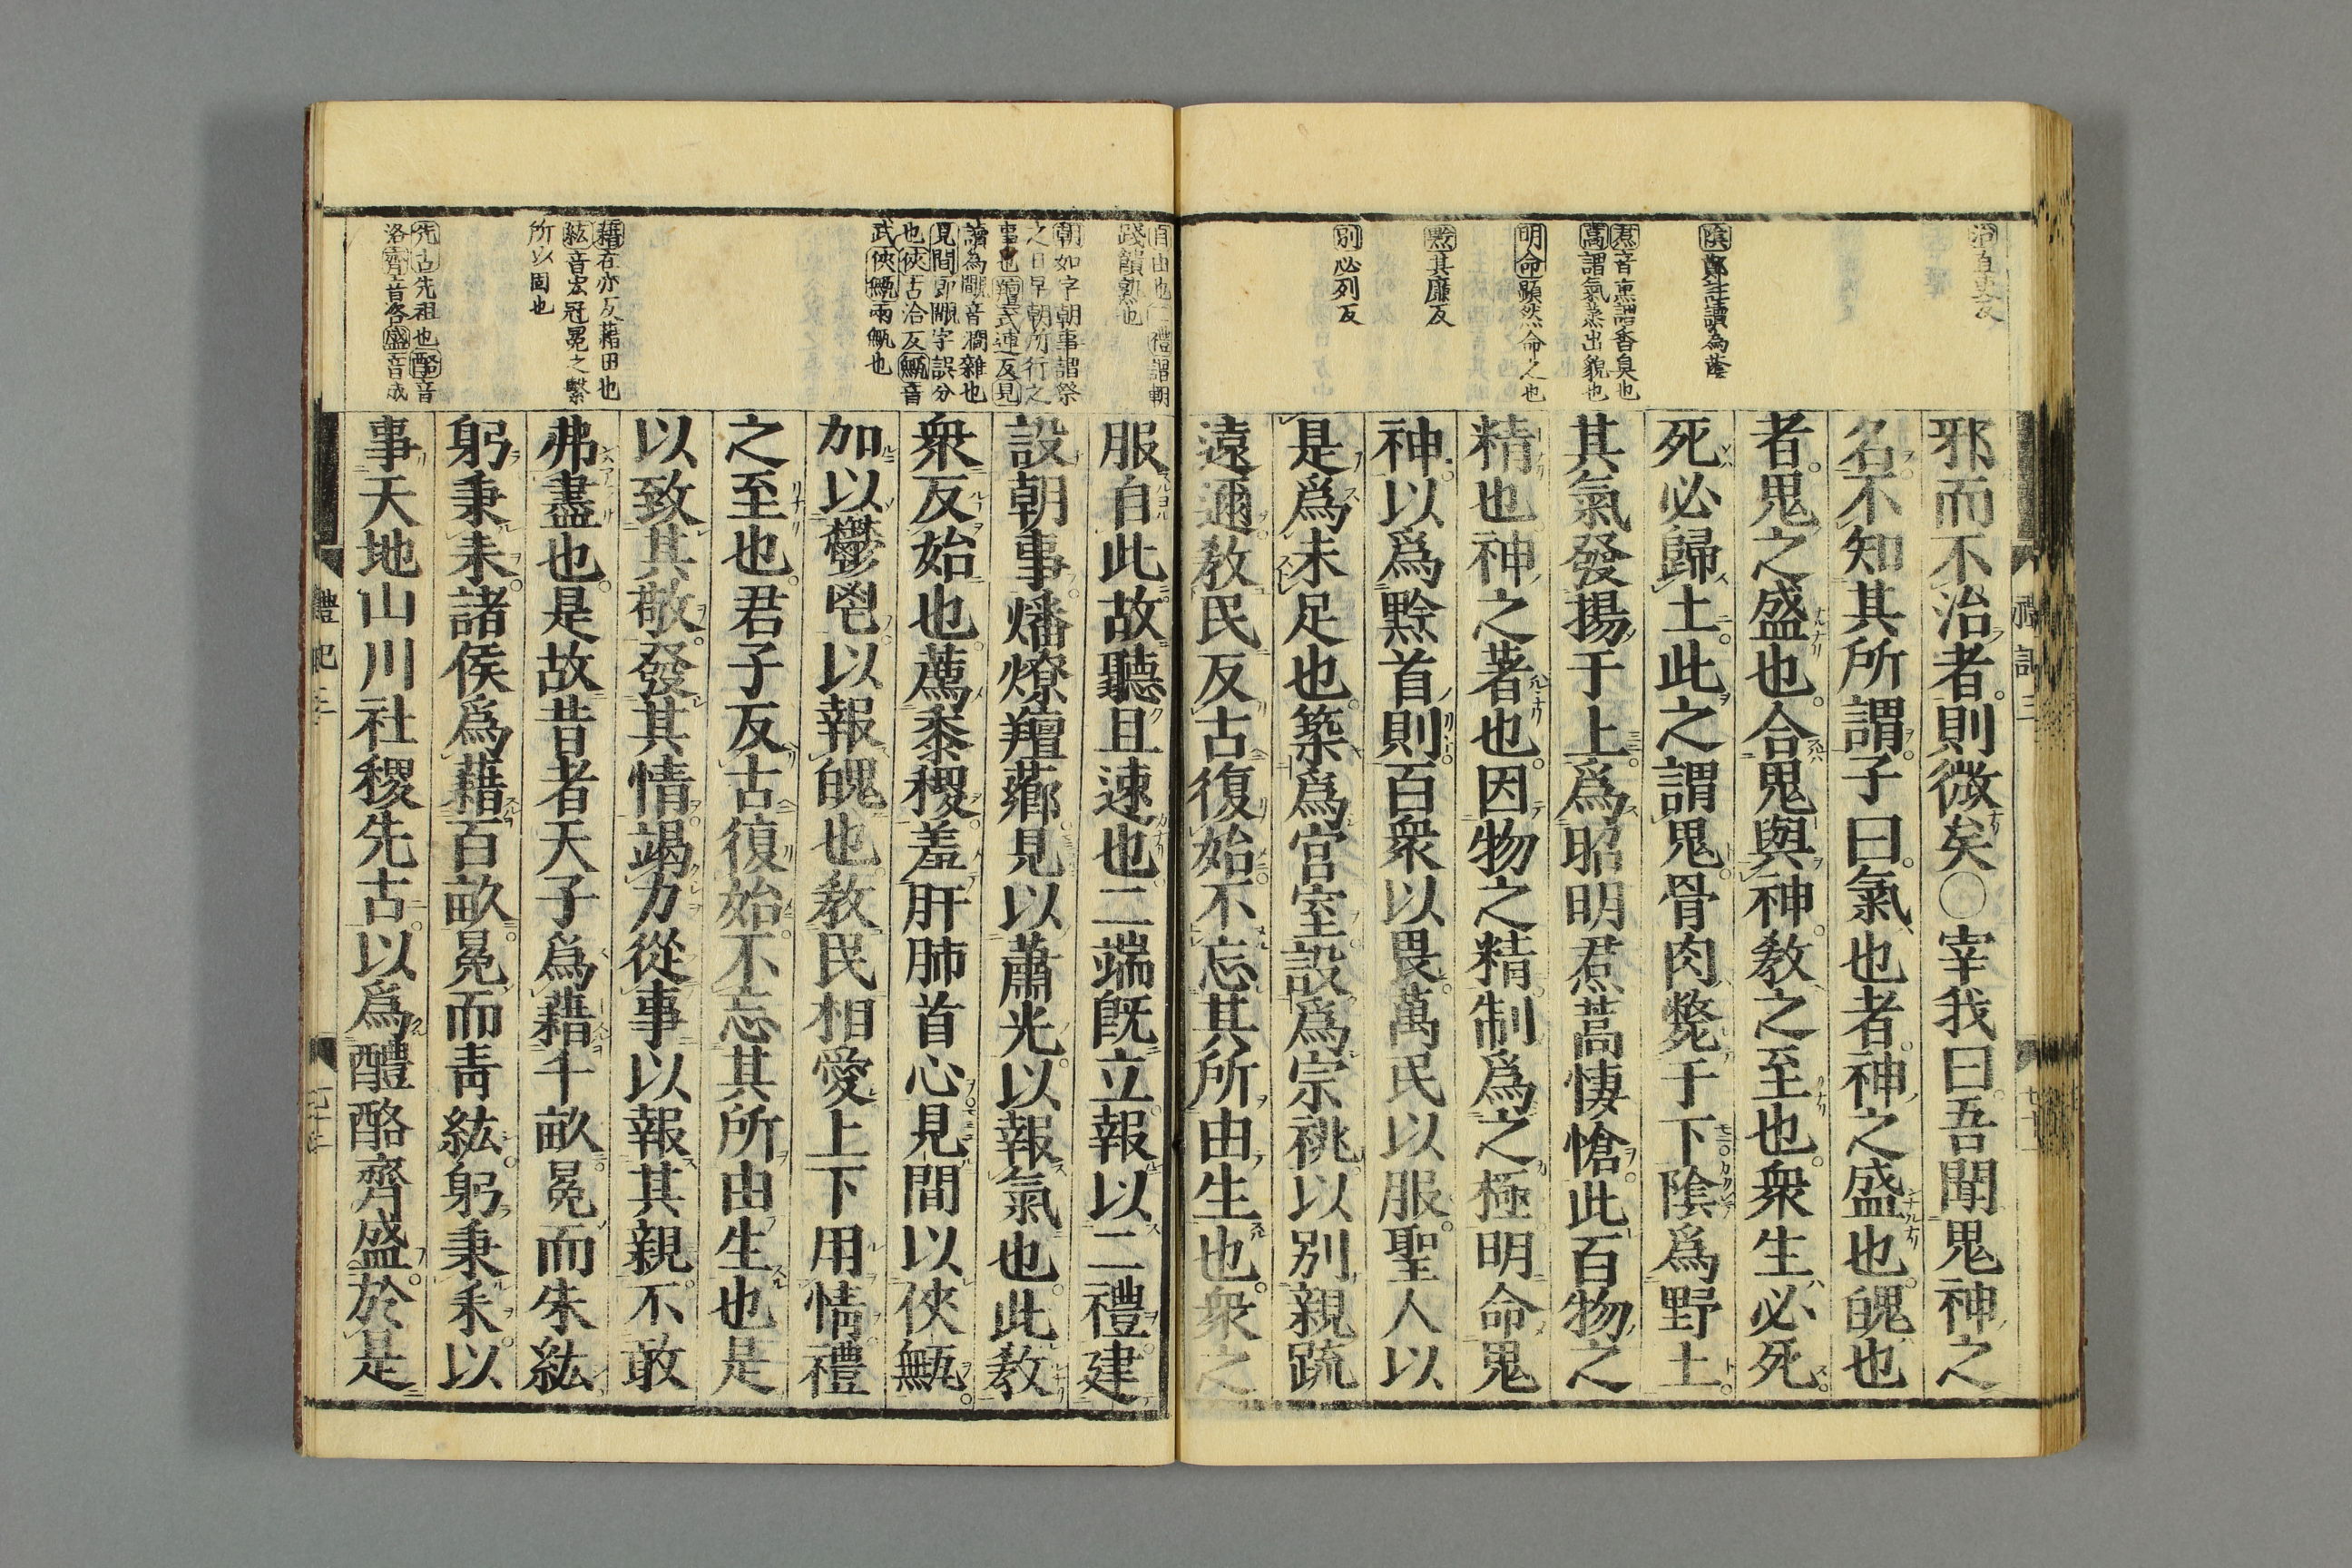 治直吏反
陰鄭注讀為蔭
焄音熏謂香臭也
蒿謂氣蒸出貌也
明命顯然命之也
黔其廉反
別必列反
邪而不治者則微矣○宰我曰吾聞鬼神之
名不知其所謂子曰氣也者神之盛也魄也
者鬼之盛也合鬼與神教之至也衆生必死
死必歸土此之謂鬼骨肉斃于下陰爲野土
其氣發揚于上爲昭明焄蒿悽愴此百物之
精也神之著也因物之精制爲之極明命鬼
神以爲黔首則百衆以畏萬民以服聖人以
是爲未足也築爲宮室設爲宗祧以別親疏
遠邇教民反古復始不忘其所由生也衆之
自由也二禮謂朝
踐饋熟也
朝如字朝事謂祭
之日早朝所行之
事也羶式連反見
讀為覸音澗雜也
見間即覸字誤分
也俠古洽反甒音
武俠甒兩甒也
藉在亦反藉田也
紘音宏冠冕之繫
所以固也
先古先祖也酪音
洛齊音咨盛音成
服自此故聽且速也二端既立報以二禮建
設朝事燔燎羶薌見以蕭光以報氣也此教
衆反始也薦黍稷羞肝肺首心見間以俠甒
加以鬱鬯以報魄也教民相愛上下用情禮
之至也君子反古復始不忘其所由生也是
以致其敬發其情竭力從事以報其親不敢
弗盡也是故昔者天子爲藉千畝冕而朱紘
躬秉耒諸侯爲藉百畝冕而靑紘躬秉耒以
事天地山川社稷先古以爲醴酪齊盛於是
禮記三